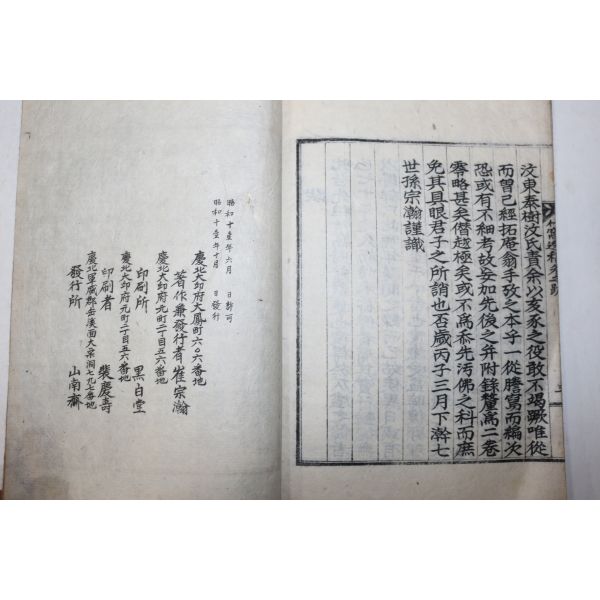 汶東泰樹汶氏責余以亥豕之役敢不竭蹶唯從
而曾已經拓庵翁手攷之本乎一從謄寫而編次
恐或有不細考故妄加先後之弁附錄釐爲二卷
零略甚矣僭越極矣或不爲忝先汚佛之科而庶
免其具眼君子之所誚也否歲丙子三月下澣七
世孫宗瀚謹識
昭和十壹年六月 日許可
昭和十壹年十月 日發行
慶北大邱府大鳳町六〇六番地
著作兼發行者 崔宗瀚
慶北大邱府元町二丁目五六番地
印刷所 黑白堂
慶北大邱府元町二丁目五六番地
印刷者 裴慶壽
慶北軍威郡岳溪面大栗洞七九七番地
發行所 山南齋